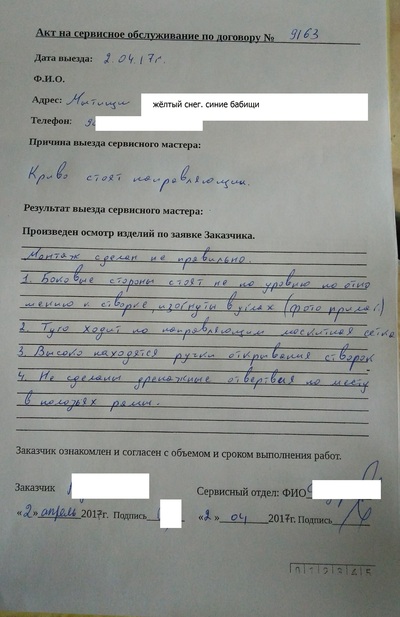 Акт на сервисное обслуживание по договору № 9163
Дата выезда: 2.04.17г.
Ф.И.О.
Адрес: Мытищи жёлтый снег. синие бабищи
Телефон:
Причина выезда сервисного мастера:
Криво стоят направляющии.
Результат выезда сервисного мастера:
Произведен осмотр изделий по заявке Заказчика.
Монтаж сделан не правильно.
1. Боковые стороны стоят не по уровню по отно
шению к створке, изогнуты в углах (фото прилаг.)
2. Туго ходит по направляющим москитная сетка
3. Высоко находятся ручки открывания створок
4. Не сделаны дренажные отверстия по месту
в полозьях рамы.
Заказчик ознакомлен и согласен с объемом и сроком выполнения работ.
Заказчик Сервисный отдел: ФИО
«2» апрель 2017г. Подпись «2» 04 2017г. Подпись
0 1 2 3 4 5